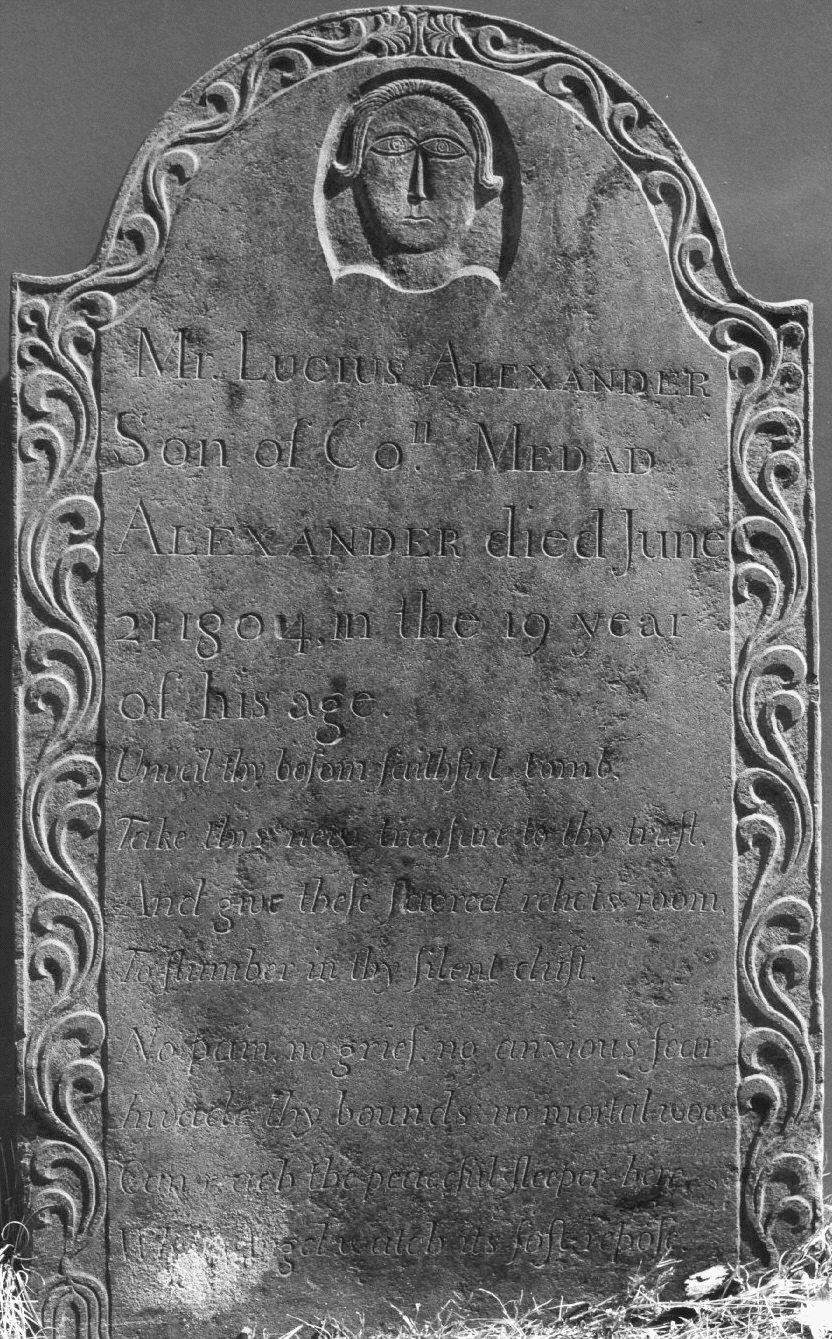 Mr. LUCIUS ALEXANDER
Son of Co.ll MEDAD
ALEXANDER died June
21 1804, in the 19 year
of his age.
Unveil thy boſom faithful tomb,
Take this new treaſure to thy truſt.
And give theſe ſacred relicts room,
To ſlumber in thy ſilent duſt.
No pain, no grief, no anxious fear
Invade thy bounds no mortal woes
Can reach the peaceful ſleeper here,
Angel watch its ſoft repoſe.